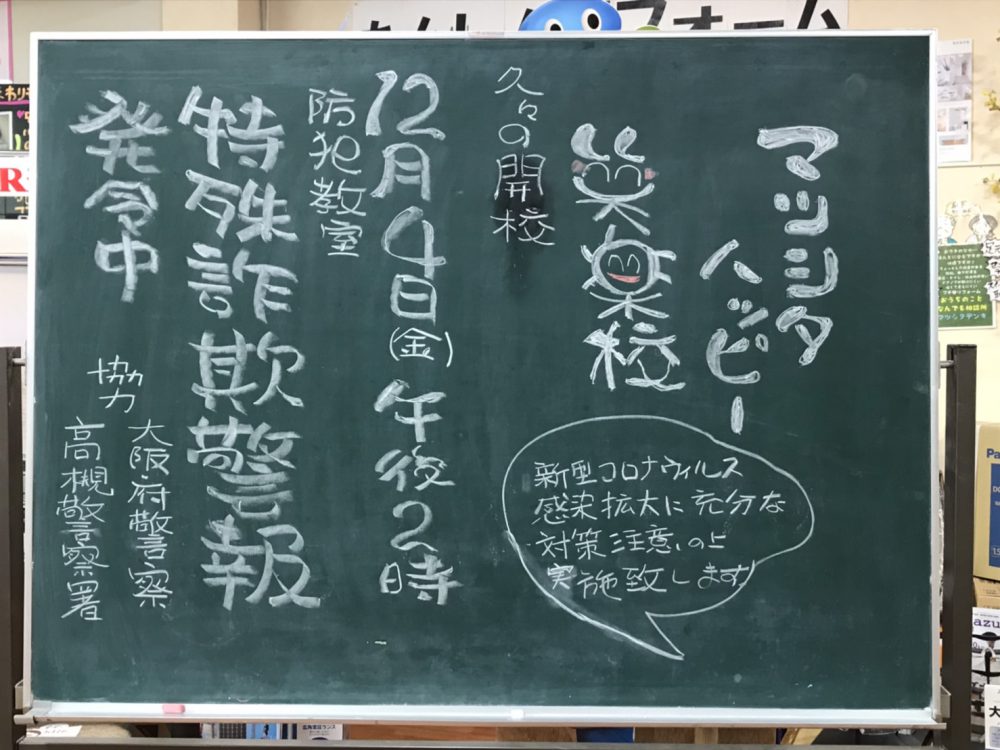 マツシタ
ハッピー
笑楽校
久々の開校
12月4日(金)午後2時
防犯教室
特殊詐欺警報
発令中
協力
大阪府警察
高槻警察署
新型コロナウィルス
感染拡大に充分な
対策注意の上
実施致します
おうちのこと
なんでも相談所
マツシタデンキ